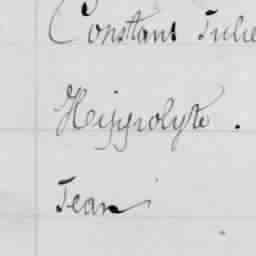 Constant Julie
Hippolyte.
Jean